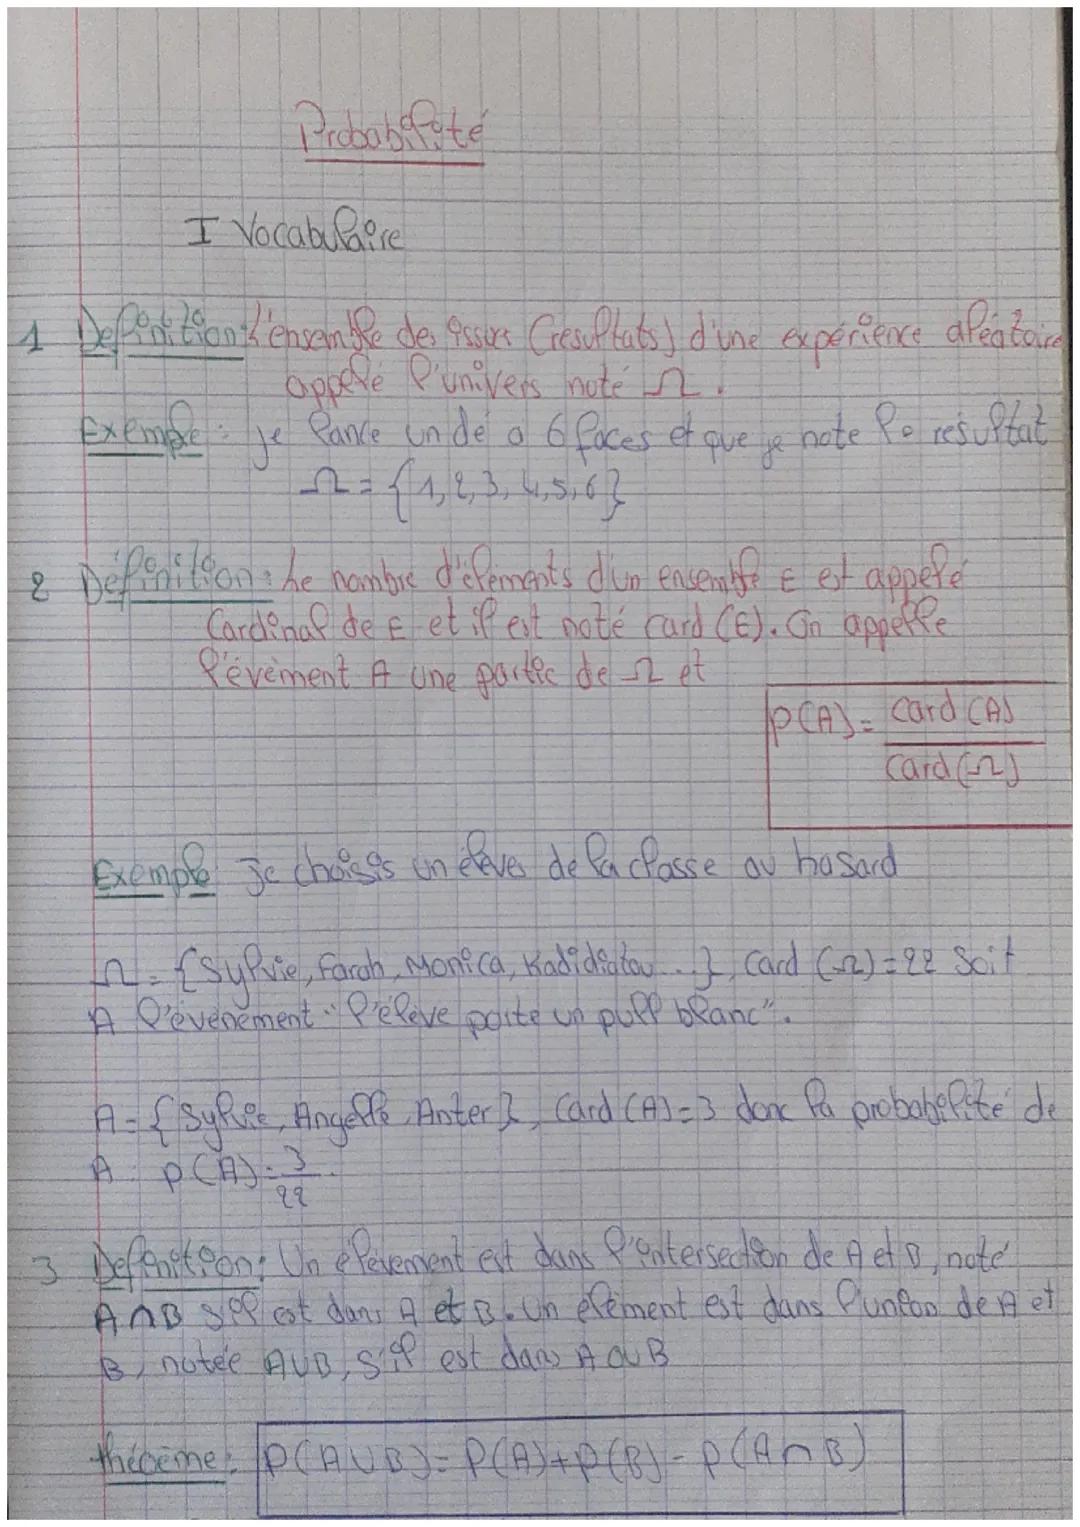 Probabilité
I Vocabulaire
1 Definition: L'ensemble des issues (resultats) d'une expérience aléatoire
appelé l'univers noté Ω.
Exemple: je lance un dé a 6 faces et que je note le résultat
Ω = {1, 2, 3, 4, 5, 6}
2 Définition: Le nombre d'éléments d'un ensemble E est appelé
Cardinal de E et il est noté card (E). On appelle
l'évèment A une partie de Ω et
p(A) = card (A)
card (Ω)
Exemple je choisis un élèves de la classe au hasard
Ω = {Sylvie, Farah, Monica, Kadidiatou...}, card (Ω) = 22 Soit
A l'événement "l'élève porte un pull blanc".
A = {Sylvie, Angelle, Anter}, Card (A) = 3 donc la probabilité de
A: p(A) = 3
22
3 Definition: Un élévement est dans l'intersection de A et B, noté
A∩B s'il est dans A et B. Un élément est dans l'union de A et
B, notée A∪B, s'il est dans A ou B
théorème: P(A∪B) = P(A) + p(B) - p(A∩B)